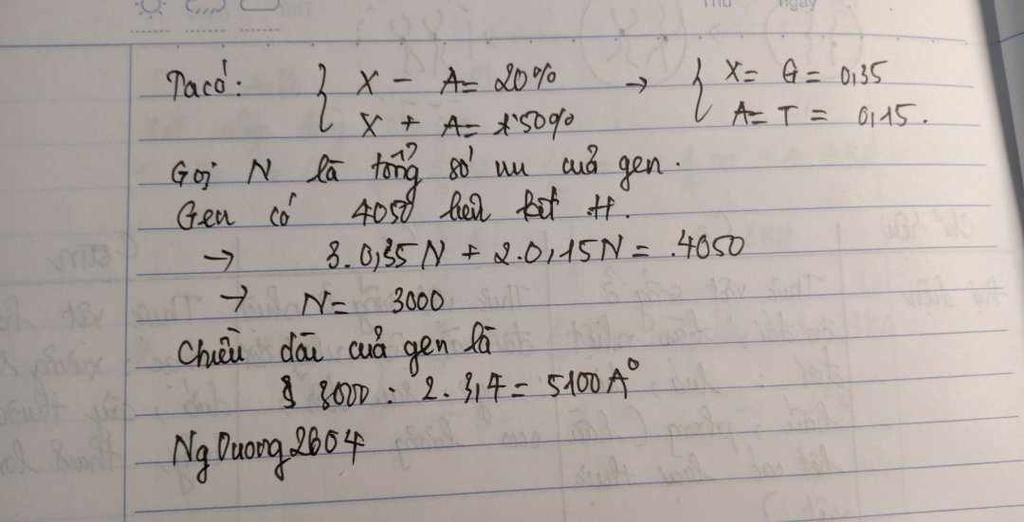 Thứ ngày
Ta có: { X - A = 20% → { X = G = 0,35
X + A = 50% A = T = 0,15.
Gọi N là tổng số nu của gen.
Gen có 4050 liên kết H.
→ 3.0,35N + 2.0,15N = 4050
→ N = 3000
Chiều dài của gen là
3000 : 2 . 3,4 = 5100 A°
NgDuong2604